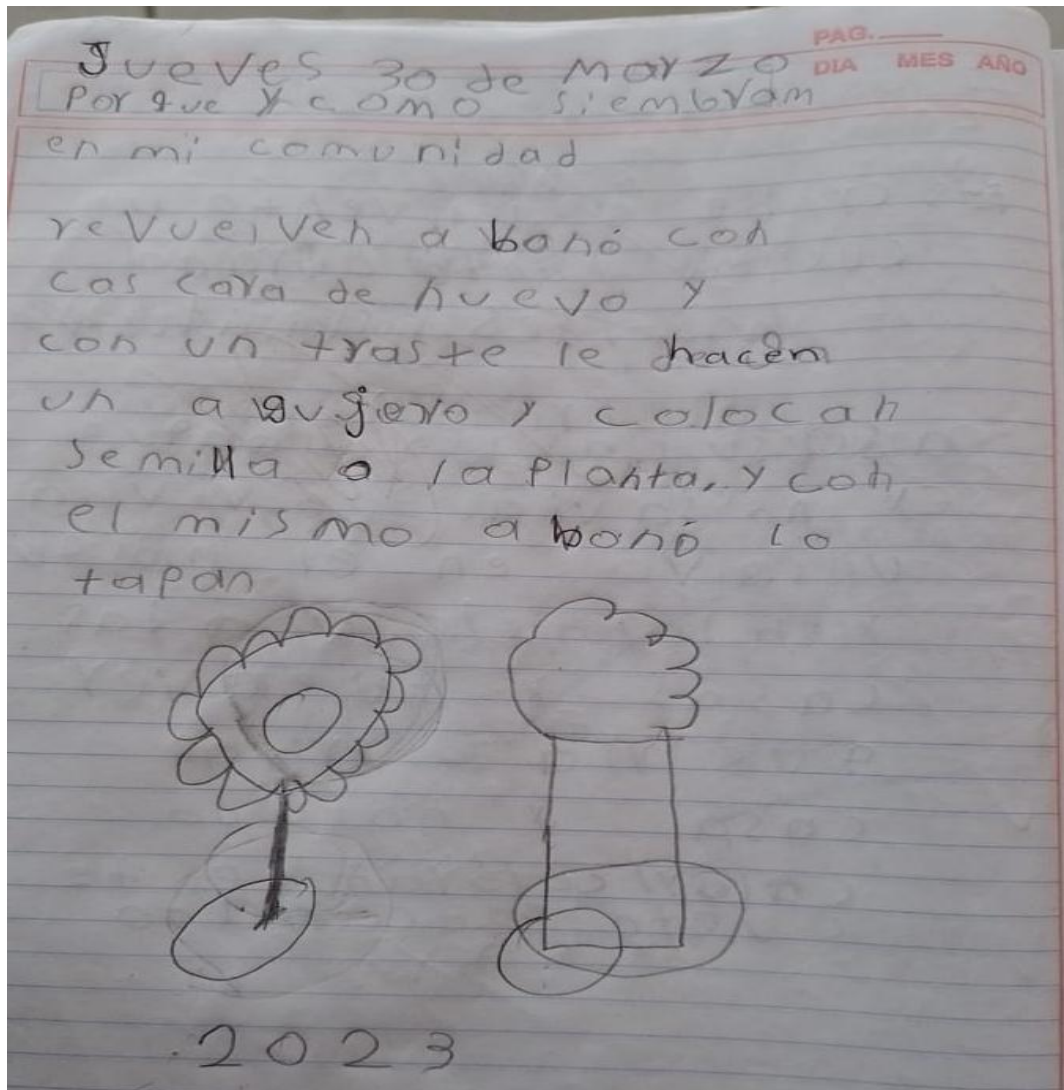 PAG.
DIA MES AÑO
Jueves 30 de Marzo
Por que y como siembram
en mi comunidad
revuelven a bonó con
cas cara de huevo y
con un traste le hacem
un agujero y colocan
semilla o la Planta, y con
el mismo abonó lo
tapan
2023